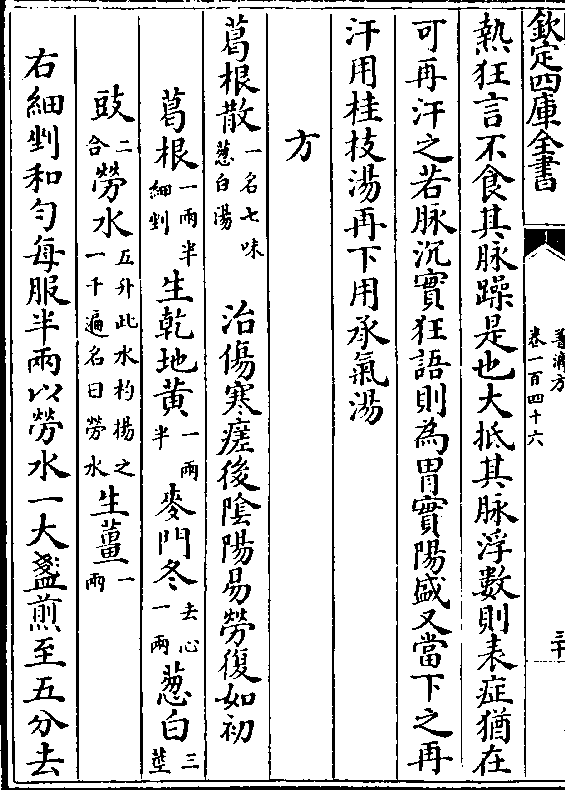 欽定四庫全書
普濟方
卷一百四十六
三十
熱狂言不食其脉躁是也大抵其脉浮數則表症猶在
可再汗之若脉沉實狂語則為胃實陽盛又當下之再
汗用桂枝湯再下用承氣湯
方
葛根散一名七味葱白湯 治傷寒瘥後陰陽易勞復如初
葛根一兩半細剉 生乾地黄一兩半 麥門冬去心一兩 葱白三莖
豉二合 勞水五升此水杓揚之一千遍名曰勞水 生薑一兩
右細剉和勻每服半兩以勞水一大盞煎至五分去